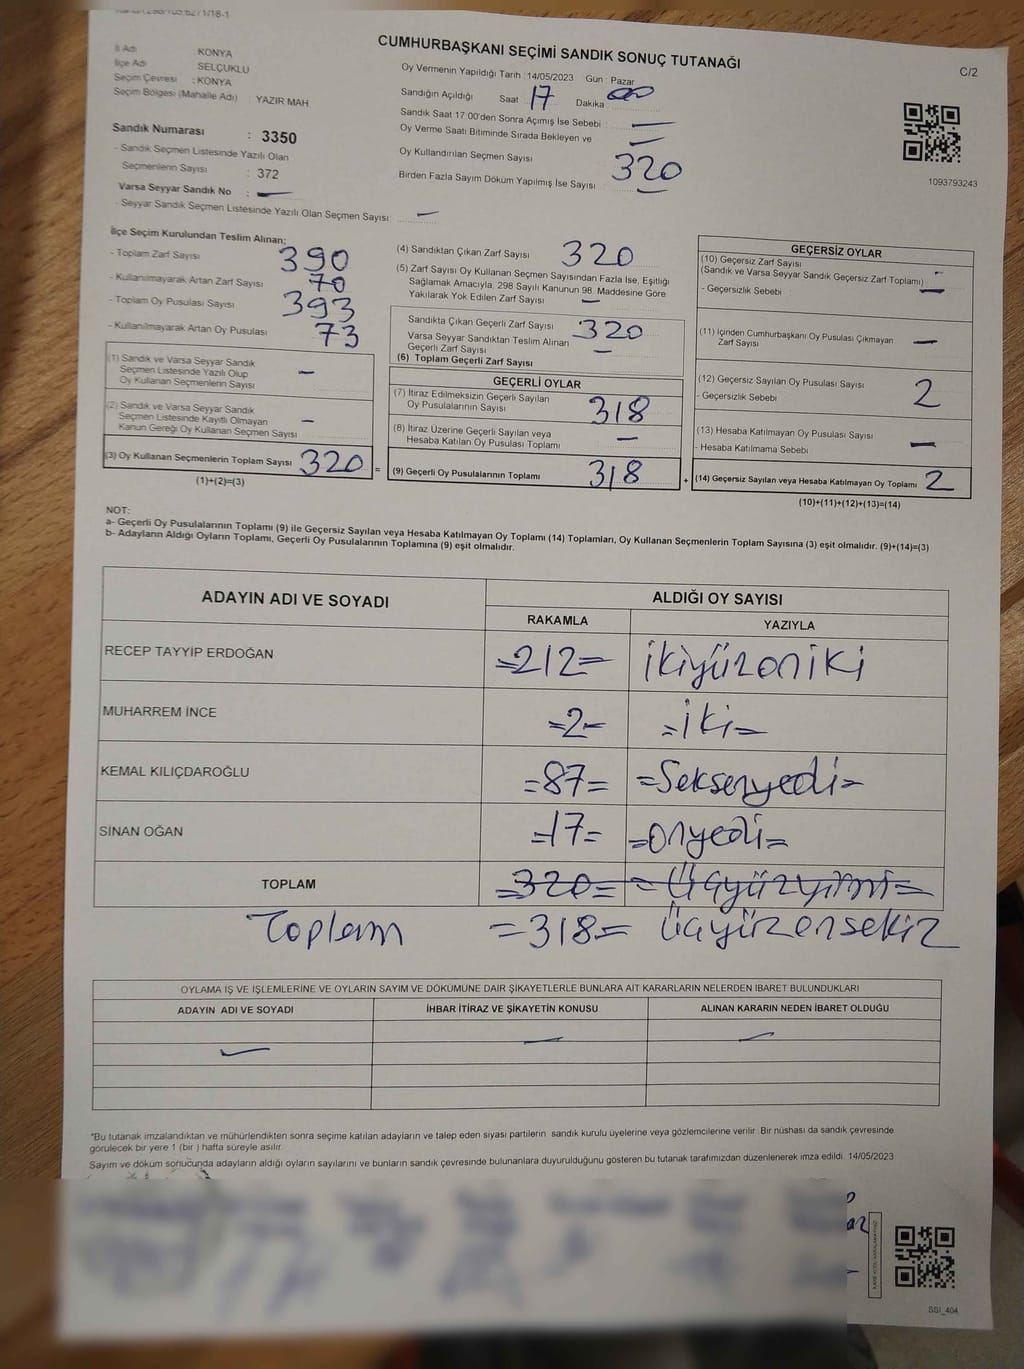 CUMHURBAŞKANI SEÇİMİ SANDIK SONUÇ TUTANAĞI
C/2
İl Adı KONYA
İlçe Adı SELÇUKLU
Seçim Çevresi : KONYA
Seçim Bölgesi (Mahalle Adı) : YAZIR MAH
Sandık Numarası : 3350
- Sandık Seçmen Listesinde Yazılı Olan
Seçmenlerin Sayısı : 372
Varsa Seyyar Sandık No : —
- Seyyar Sandık Seçmen Listesinde Yazılı Olan Seçmen Sayısı: —
Oy Vermenin Yapıldığı Tarih : 14/05/2023 Gün : Pazar
Sandığın Açıldığı Saat 17 Dakika 00
Sandık Saat 17:00'den Sonra Açımış İse Sebebi : —
Oy Verme Saati Bitiminde Sırada Bekleyen ve —
Oy Kullandırılan Seçmen Sayısı 320
Birden Fazla Sayım Döküm Yapılmış İse Sayısı : —
1093793243
İlçe Seçim Kurulundan Teslim Alınan;
- Toplam Zarf Sayısı 390
- Kullanılmayarak Artan Zarf Sayısı 70
- Toplam Oy Pusulası Sayısı 393
- Kullanılmayarak Artan Oy Pusulası 73
(1) Sandık ve Varsa Seyyar Sandık
Seçmen Listesinde Yazılı Olup —
Oy Kullanan Seçmenlerin Sayısı
(2) Sandık ve Varsa Seyyar Sandık
Seçmen Listesinde Kayıtlı Olmayan —
Kanun Gereği Oy Kullanan Seçmen Sayısı
(3) Oy Kullanan Seçmenlerin Toplam Sayısı 320 =
(1)+(2)=(3)
(4) Sandıktan Çıkan Zarf Sayısı 320
(5) Zarf Sayısı Oy Kullanan Seçmen Sayısından Fazla İse, Eşitliği
Sağlamak Amacıyla, 298 Sayılı Kanunun 98. Maddesine Göre
Yakılarak Yok Edilen Zarf Sayısı —
Sandıkta Çıkan Geçerli Zarf Sayısı 320
Varsa Seyyar Sandıktan Teslim Alınan
Geçerli Zarf Sayısı —
(6) Toplam Geçerli Zarf Sayısı
GEÇERLİ OYLAR
(7) İtiraz Edilmeksizin Geçerli Sayılan
Oy Pusulalarının Sayısı 318
(8) İtiraz Üzerine Geçerli Sayılan veya
Hesaba Katılan Oy Pusulası Toplamı —
(9) Geçerli Oy Pusulalarının Toplamı 318 +
GEÇERSİZ OYLAR
(10) Geçersiz Zarf Sayısı
(Sandık ve Varsa Seyyar Sandık Geçersiz Zarf Toplamı) -
- Geçersizlik Sebebi —
(11) İçinden Cumhurbaşkanı Oy Pusulası Çıkmayan
Zarf Sayısı —
(12) Geçersiz Sayılan Oy Pusulası Sayısı 2
- Geçersizlik Sebebi
(13) Hesaba Katılmayan Oy Pusulası Sayısı —
- Hesaba Katılmama Sebebi
(14) Geçersiz Sayılan veya Hesaba Katılmayan Oy Toplamı 2
(10)+(11)+(12)+(13)=(14)
NOT:
a- Geçerli Oy Pusulalarının Toplamı (9) ile Geçersiz Sayılan veya Hesaba Katılmayan Oy Toplamı (14) Toplamları, Oy Kullanan Seçmenlerin Toplam Sayısına (3) eşit olmalıdır. (9)+(14)=(3)
b- Adayların Aldığı Oyların Toplamı, Geçerli Oy Pusulalarının Toplamına (9) eşit olmalıdır.
ADAYIN ADI VE SOYADI ALDIĞI OY SAYISI
RAKAMLA YAZIYLA
RECEP TAYYİP ERDOĞAN =212= İkiyüzoniki
MUHARREM İNCE =2= =İki=
KEMAL KILIÇDAROĞLU =87= =Seksenyedi=
SİNAN OĞAN =17= =Onyedi=
TOPLAM =320= =Üçyüzyirmi=
Toplam =318= Üçyüzonsekiz
OYLAMA İŞ VE İŞLEMLERİNE VE OYLARIN SAYIM VE DÖKÜMÜNE DAİR ŞİKAYETLERLE BUNLARA AİT KARARLARIN NELERDEN İBARET BULUNDUKLARI
ADAYIN ADI VE SOYADI İHBAR İTİRAZ VE ŞİKAYETİN KONUSU ALINAN KARARIN NEDEN İBARET OLDUĞU
— — —
*Bu tutanak imzalandıktan ve mühürlendikten sonra seçime katılan adayların ve talep eden siyasi partilerin sandık kurulu üyelerine veya gözlemcilerine verilir. Bir nüshası da sandık çevresinde
görülecek bir yere 1 (bir ) hafta süreyle asılır.
Sayım ve döküm sonucunda adayların aldığı oyların sayılarını ve bunların sandık çevresinde bulunanlara duyurulduğunu gösteren bu tutanak tarafımızdan düzenlenerek imza edildi. 14/05/2023
SSI_404